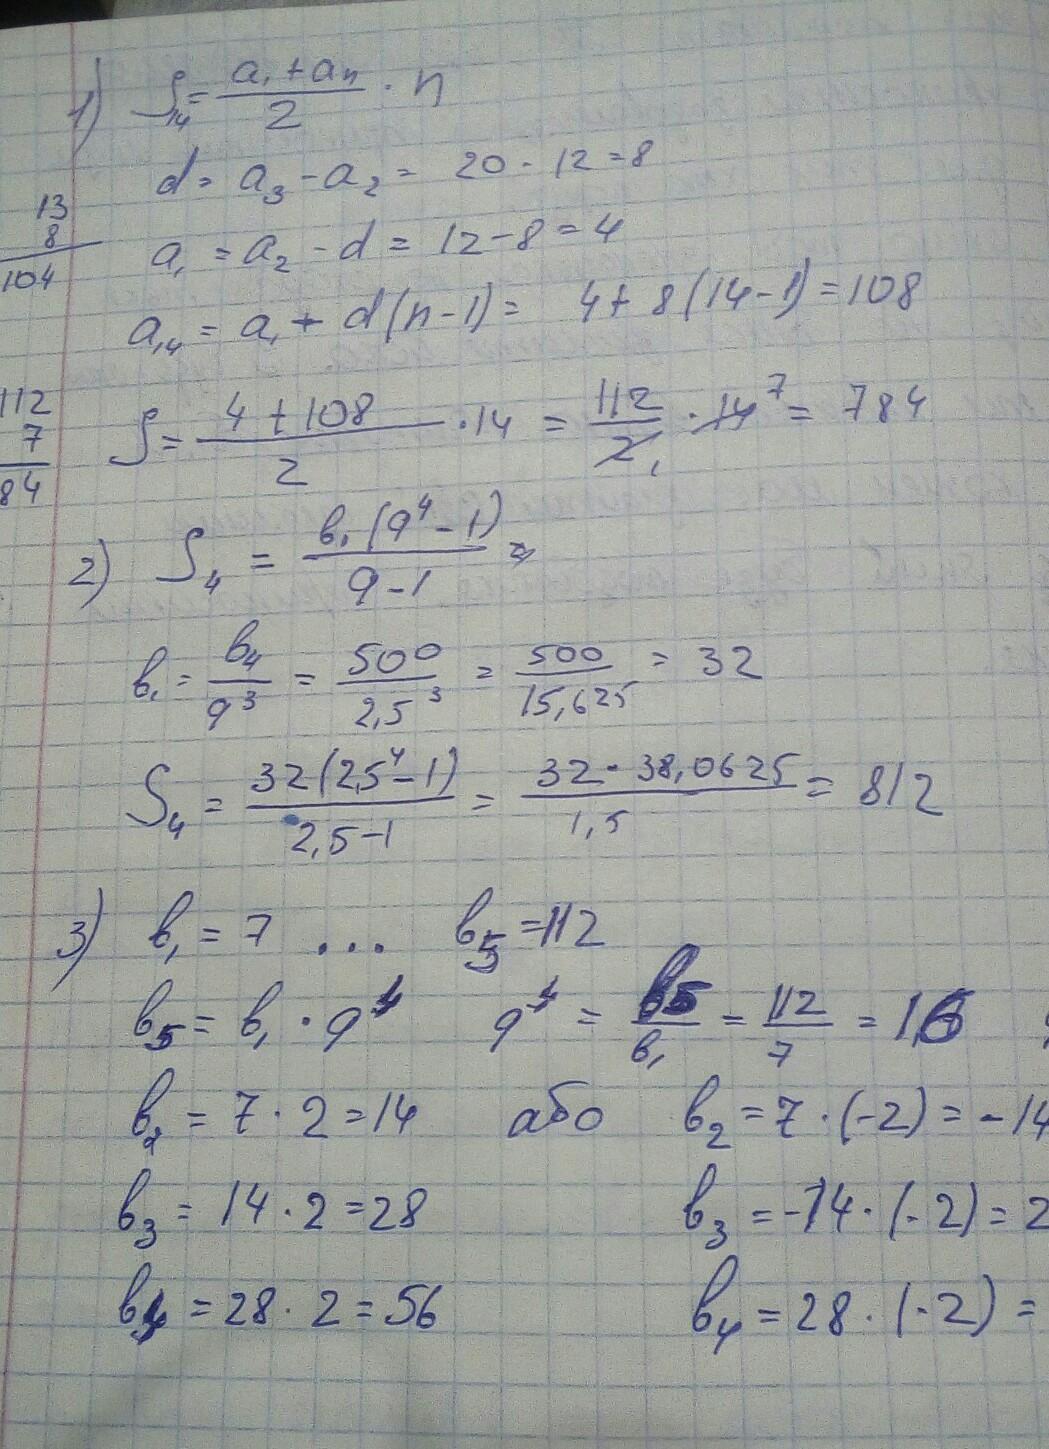 1) S₁₄ = (a₁ + aₙ)/2 · n
d = a₃ - a₂ = 20 - 12 = 8
13
8
104
a₁ = a₂ - d = 12 - 8 = 4
a₁₄ = a₁ + d(n-1) = 4 + 8(14-1) = 108
112
7
84
S = (4 + 108)/2 · 14 = 112/2 ₁ · 14 ⁷ = 784
2) S₄ = b₁(q⁴ - 1)/(q - 1) =
b₁ = b₄/q³ = 500/2,5³ = 500/15,625 = 32
S₄ = 32(2,5⁴ - 1)/(2,5 - 1) = 32 · 38,0625/1,5 = 812
3) b₁ = 7 ... b₅ = 112
b₅ = b₁ · q⁴ q⁴ = b₅/b₁ = 112/7 = 16
b₂ = 7 · 2 = 14 або b₂ = 7 · (-2) = -14
b₃ = 14 · 2 = 28 b₃ = -14 · (-2) = 2
b₄ = 28 · 2 = 56 b₄ = 28 · (-2) =